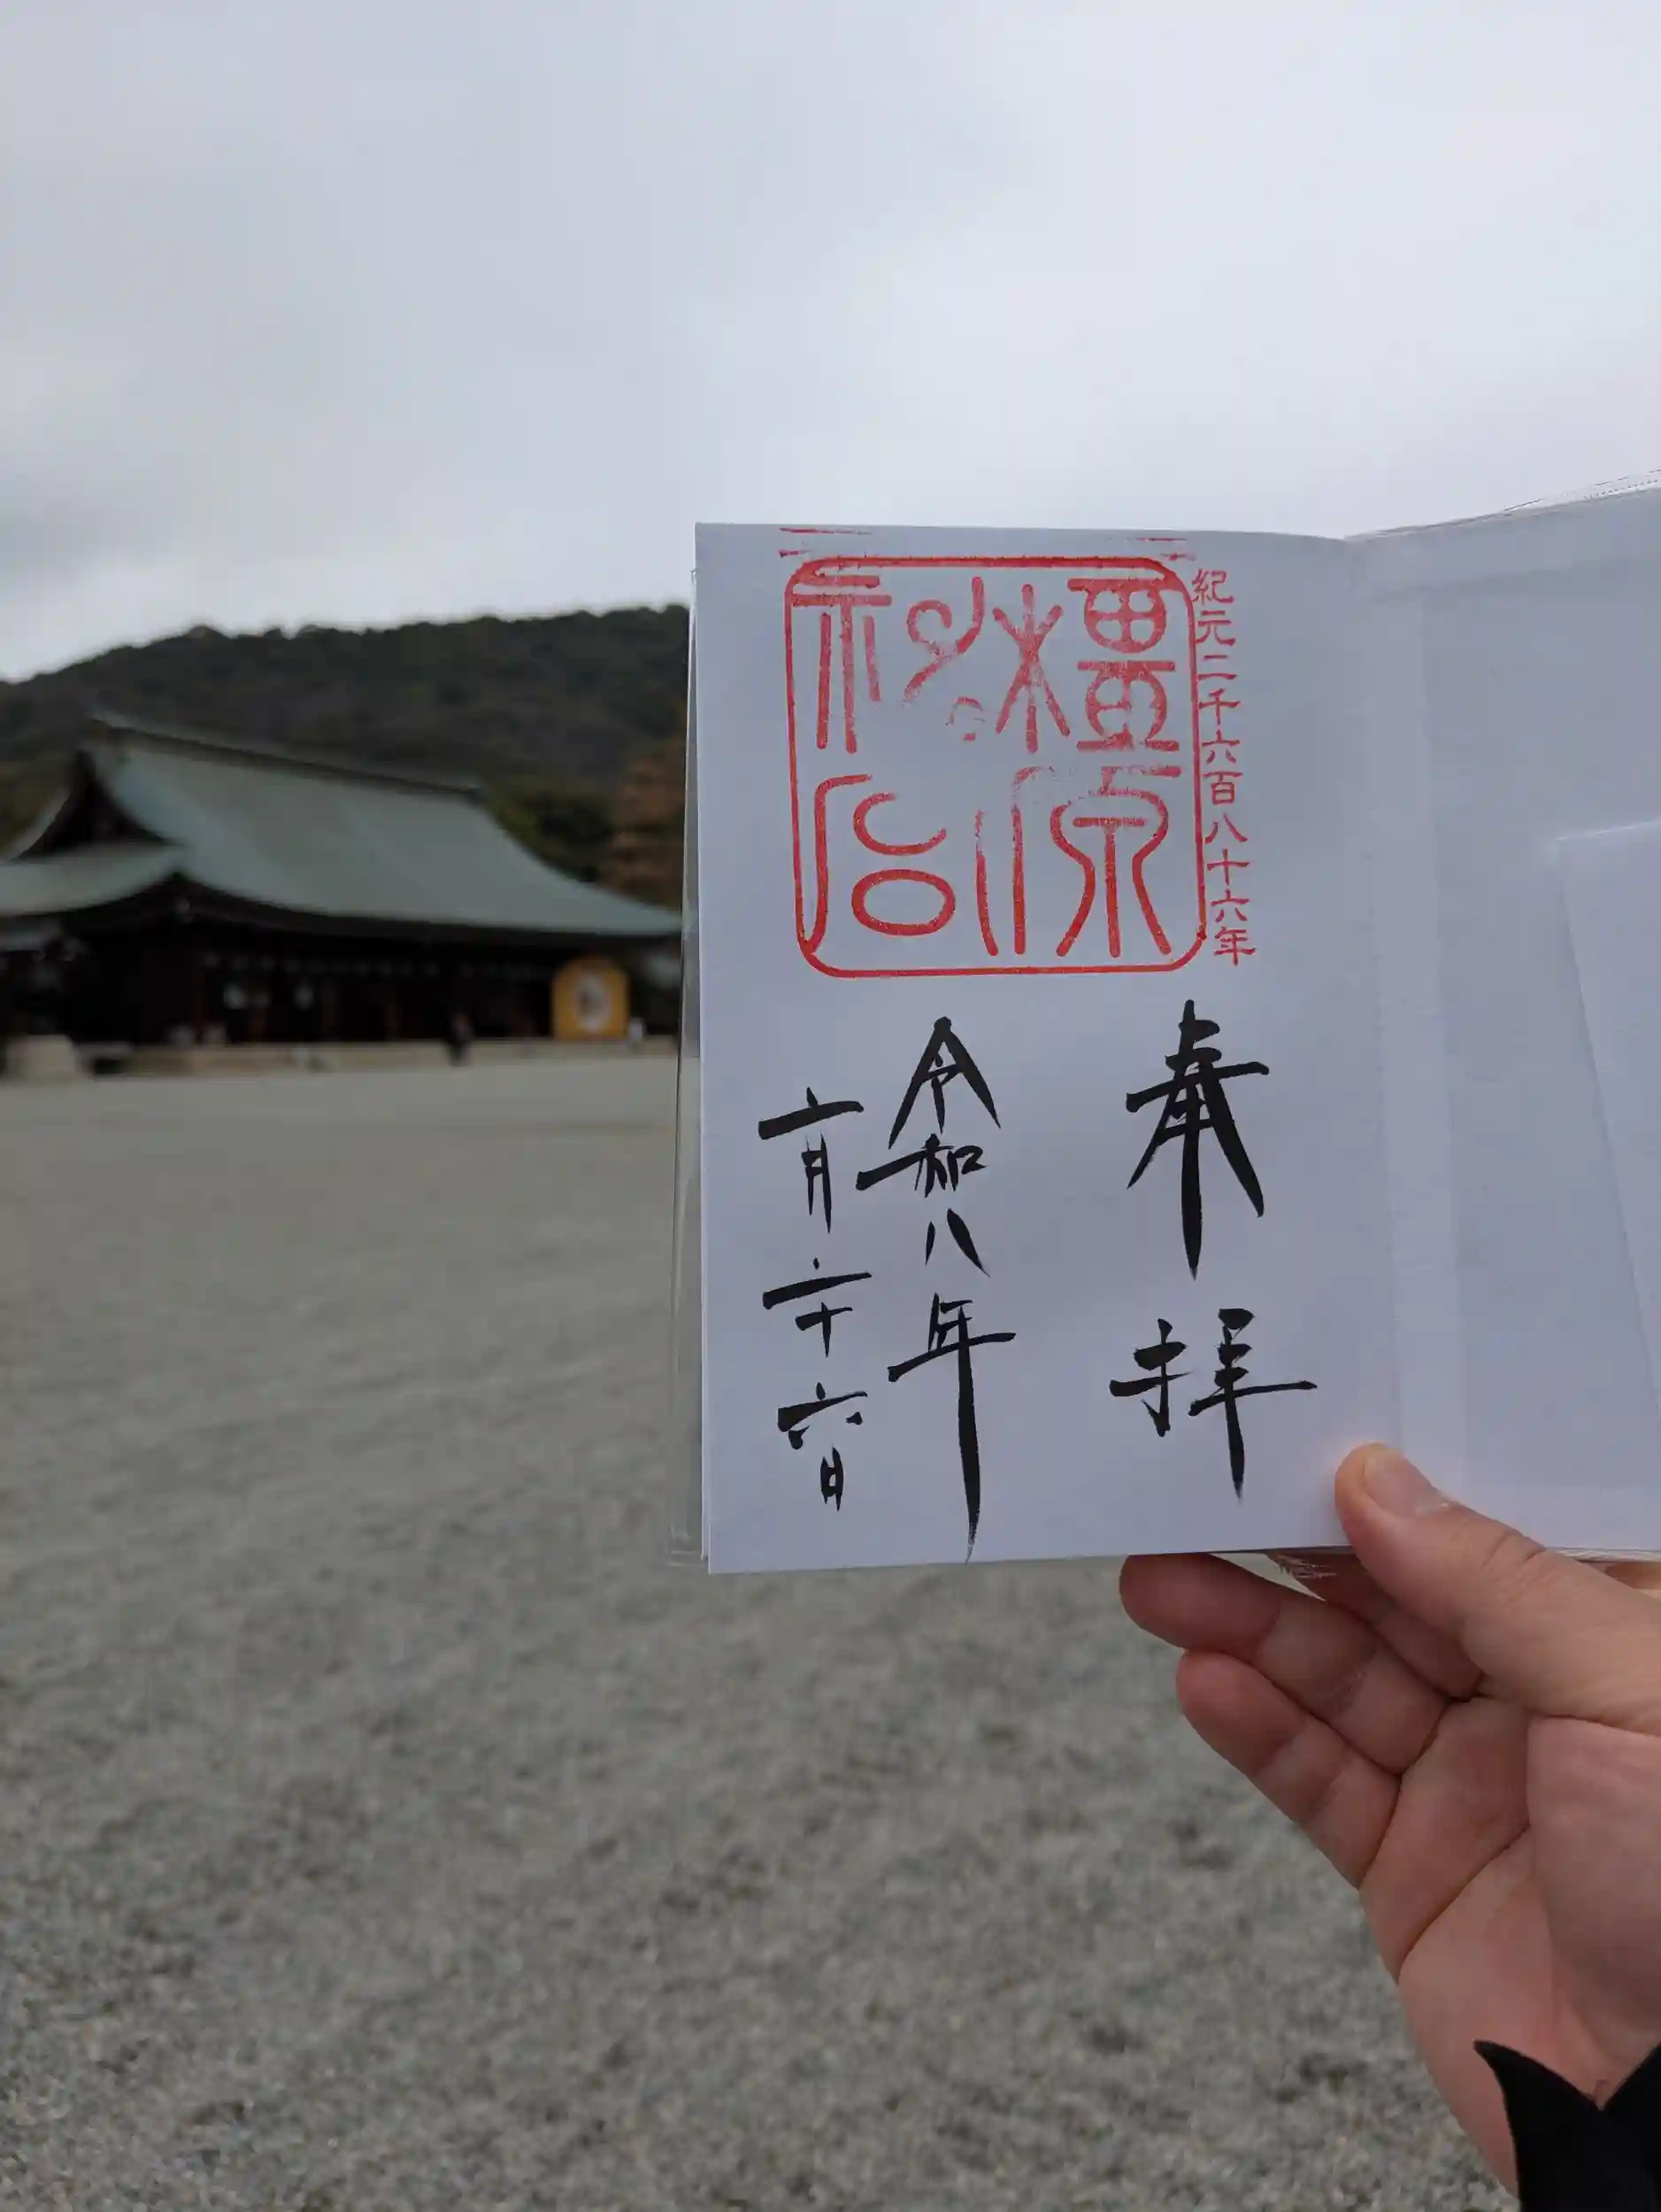 紀元二千六百八十六年
橿原
神宮
奉拝
令和八年
二月二十六日